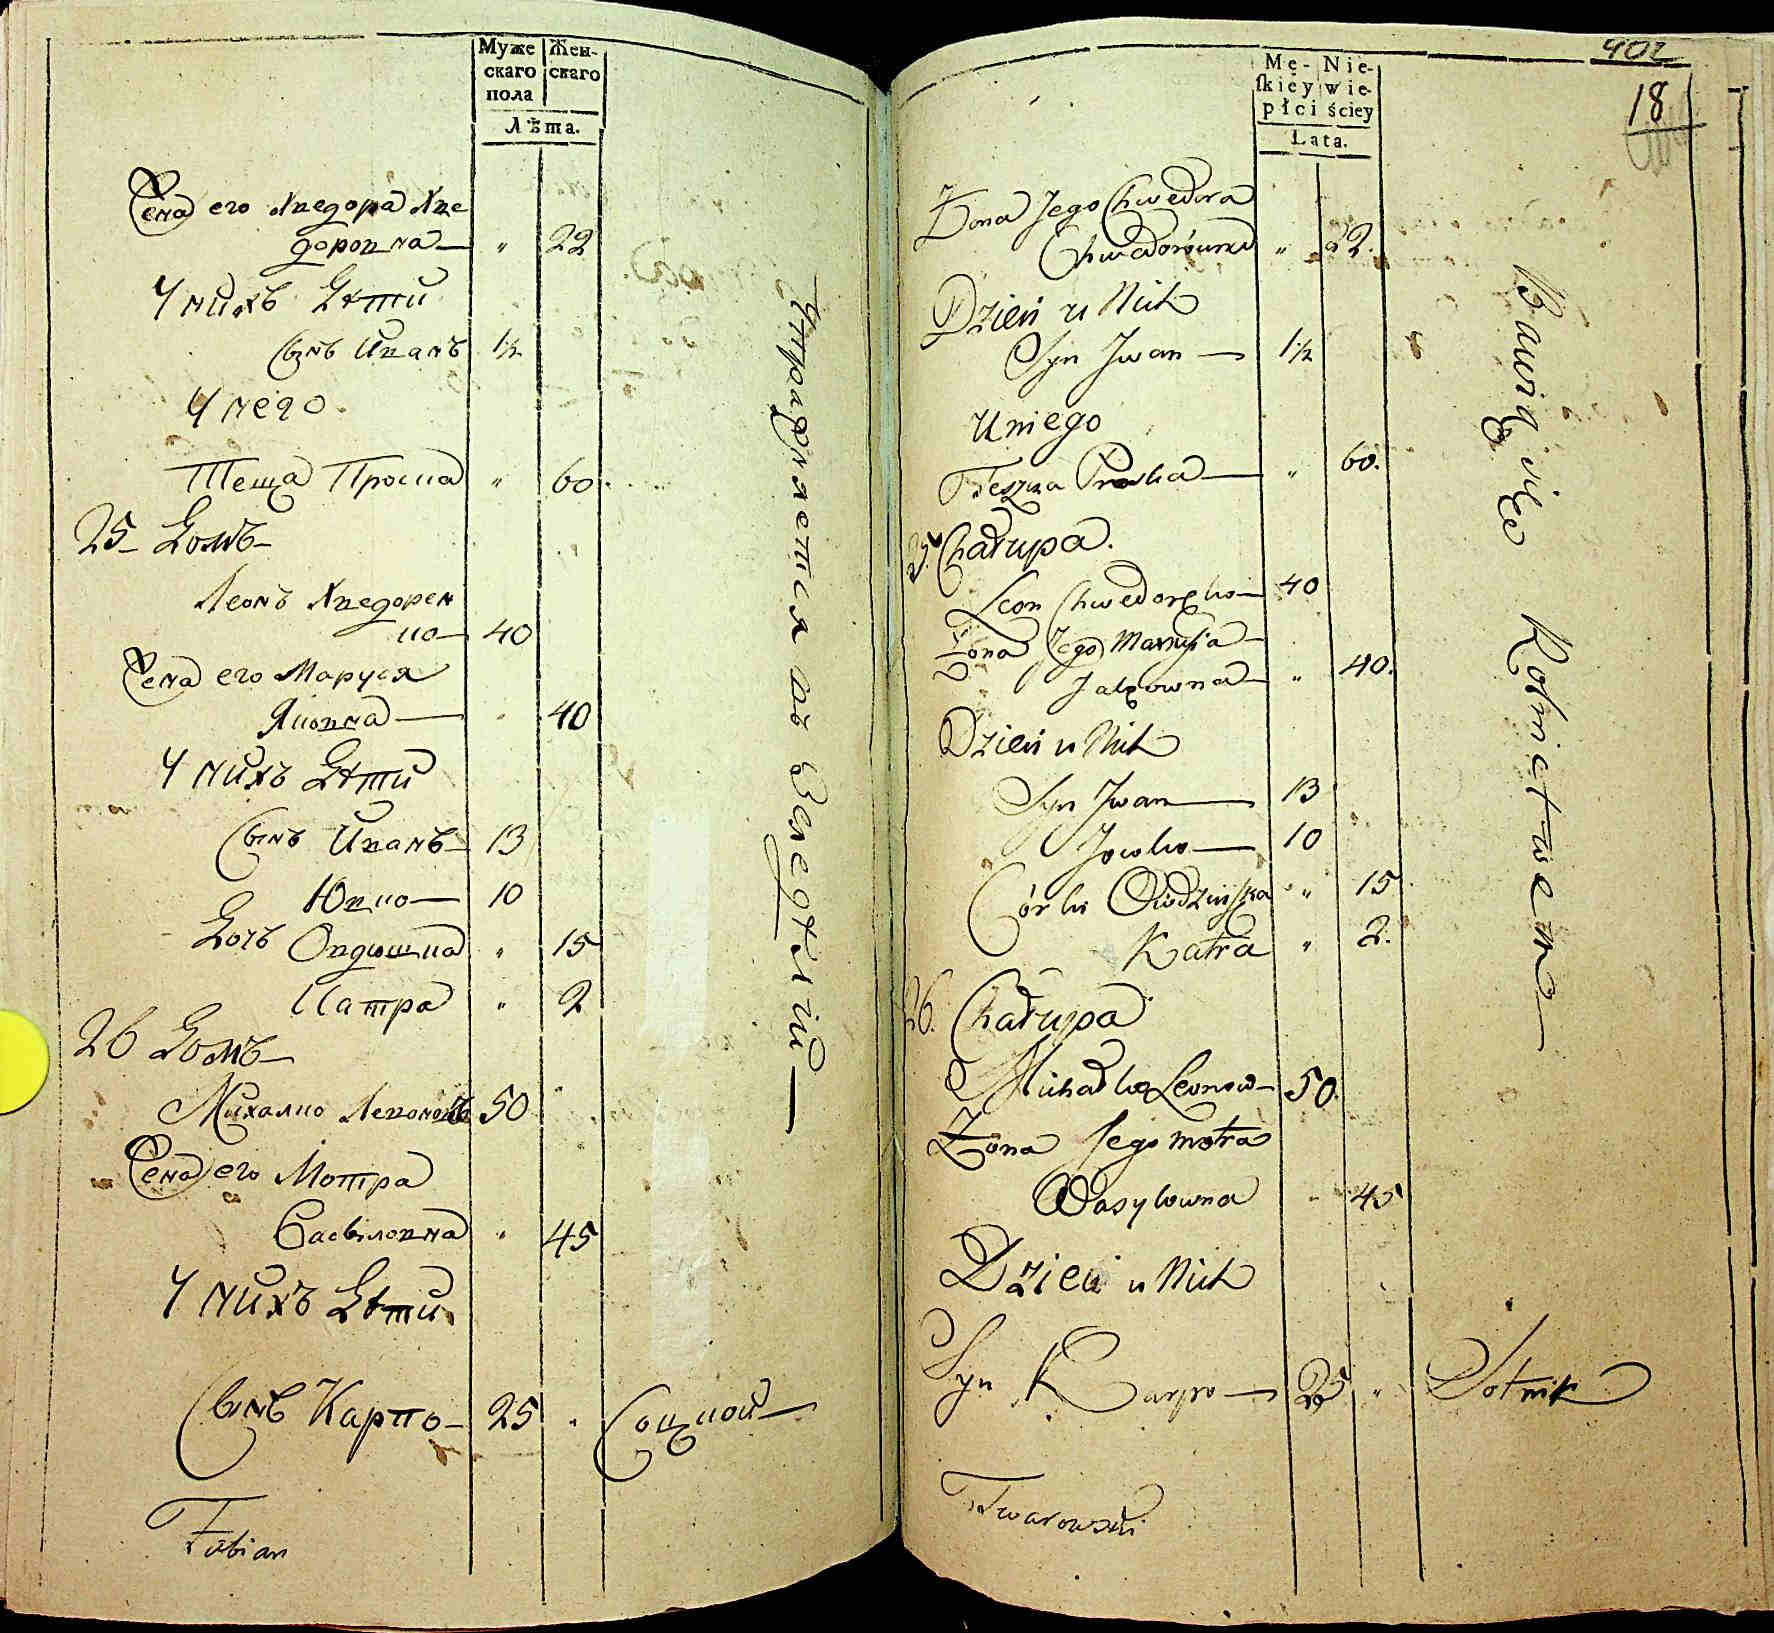 Муже Жен-
скаго скаго
пола
Лѣта.
Жена его Хведора Хве
доровна — " 22
У нихъ Дѣти
Сынъ Иванъ 1½
У него
Теща Проска " 60.
25 Домъ
Леонъ Хведорен
ко — 40
Жена его Маруся
Яковна — " 40
У нихъ Дѣти
Сынъ Иванъ 13
Ювко — 10
Дочь Овдюшка " 15
Катра " 2
26 Домъ
Михалко Левоновъ 50
Жена его Мотра
Василовна " 45
У нихъ Дѣти
Сынъ Карпо — 25 " Соцкой —
Fabian
Упражняется въ Земледѣлій —
402
18
Mę- Nie-
skiey wie-
płci ściey
Lata.
Żona Jego Chwedora
Chwedorówna " 22.
Dzieci u Nich
Syn Jwan — 1½
U niego
Teszcza Proska — " 60.
25. Chałupa.
Leon Chwedoręko — 40
Żona Jego Marusia —
Jakowna — " 40.
Dzieci u Nich
Syn Jwan — 13
Jowko — 10
Córki Owdziuszka " 15
Katra " 2.
26. Chałupa
Michałko Leonow — 50.
Żona Jego Motra
Wasylowna " 45
Dzieci u Nich
Syn Karpo — 25 " Sotnik
Twarowski
Bawią się Rolnictwem